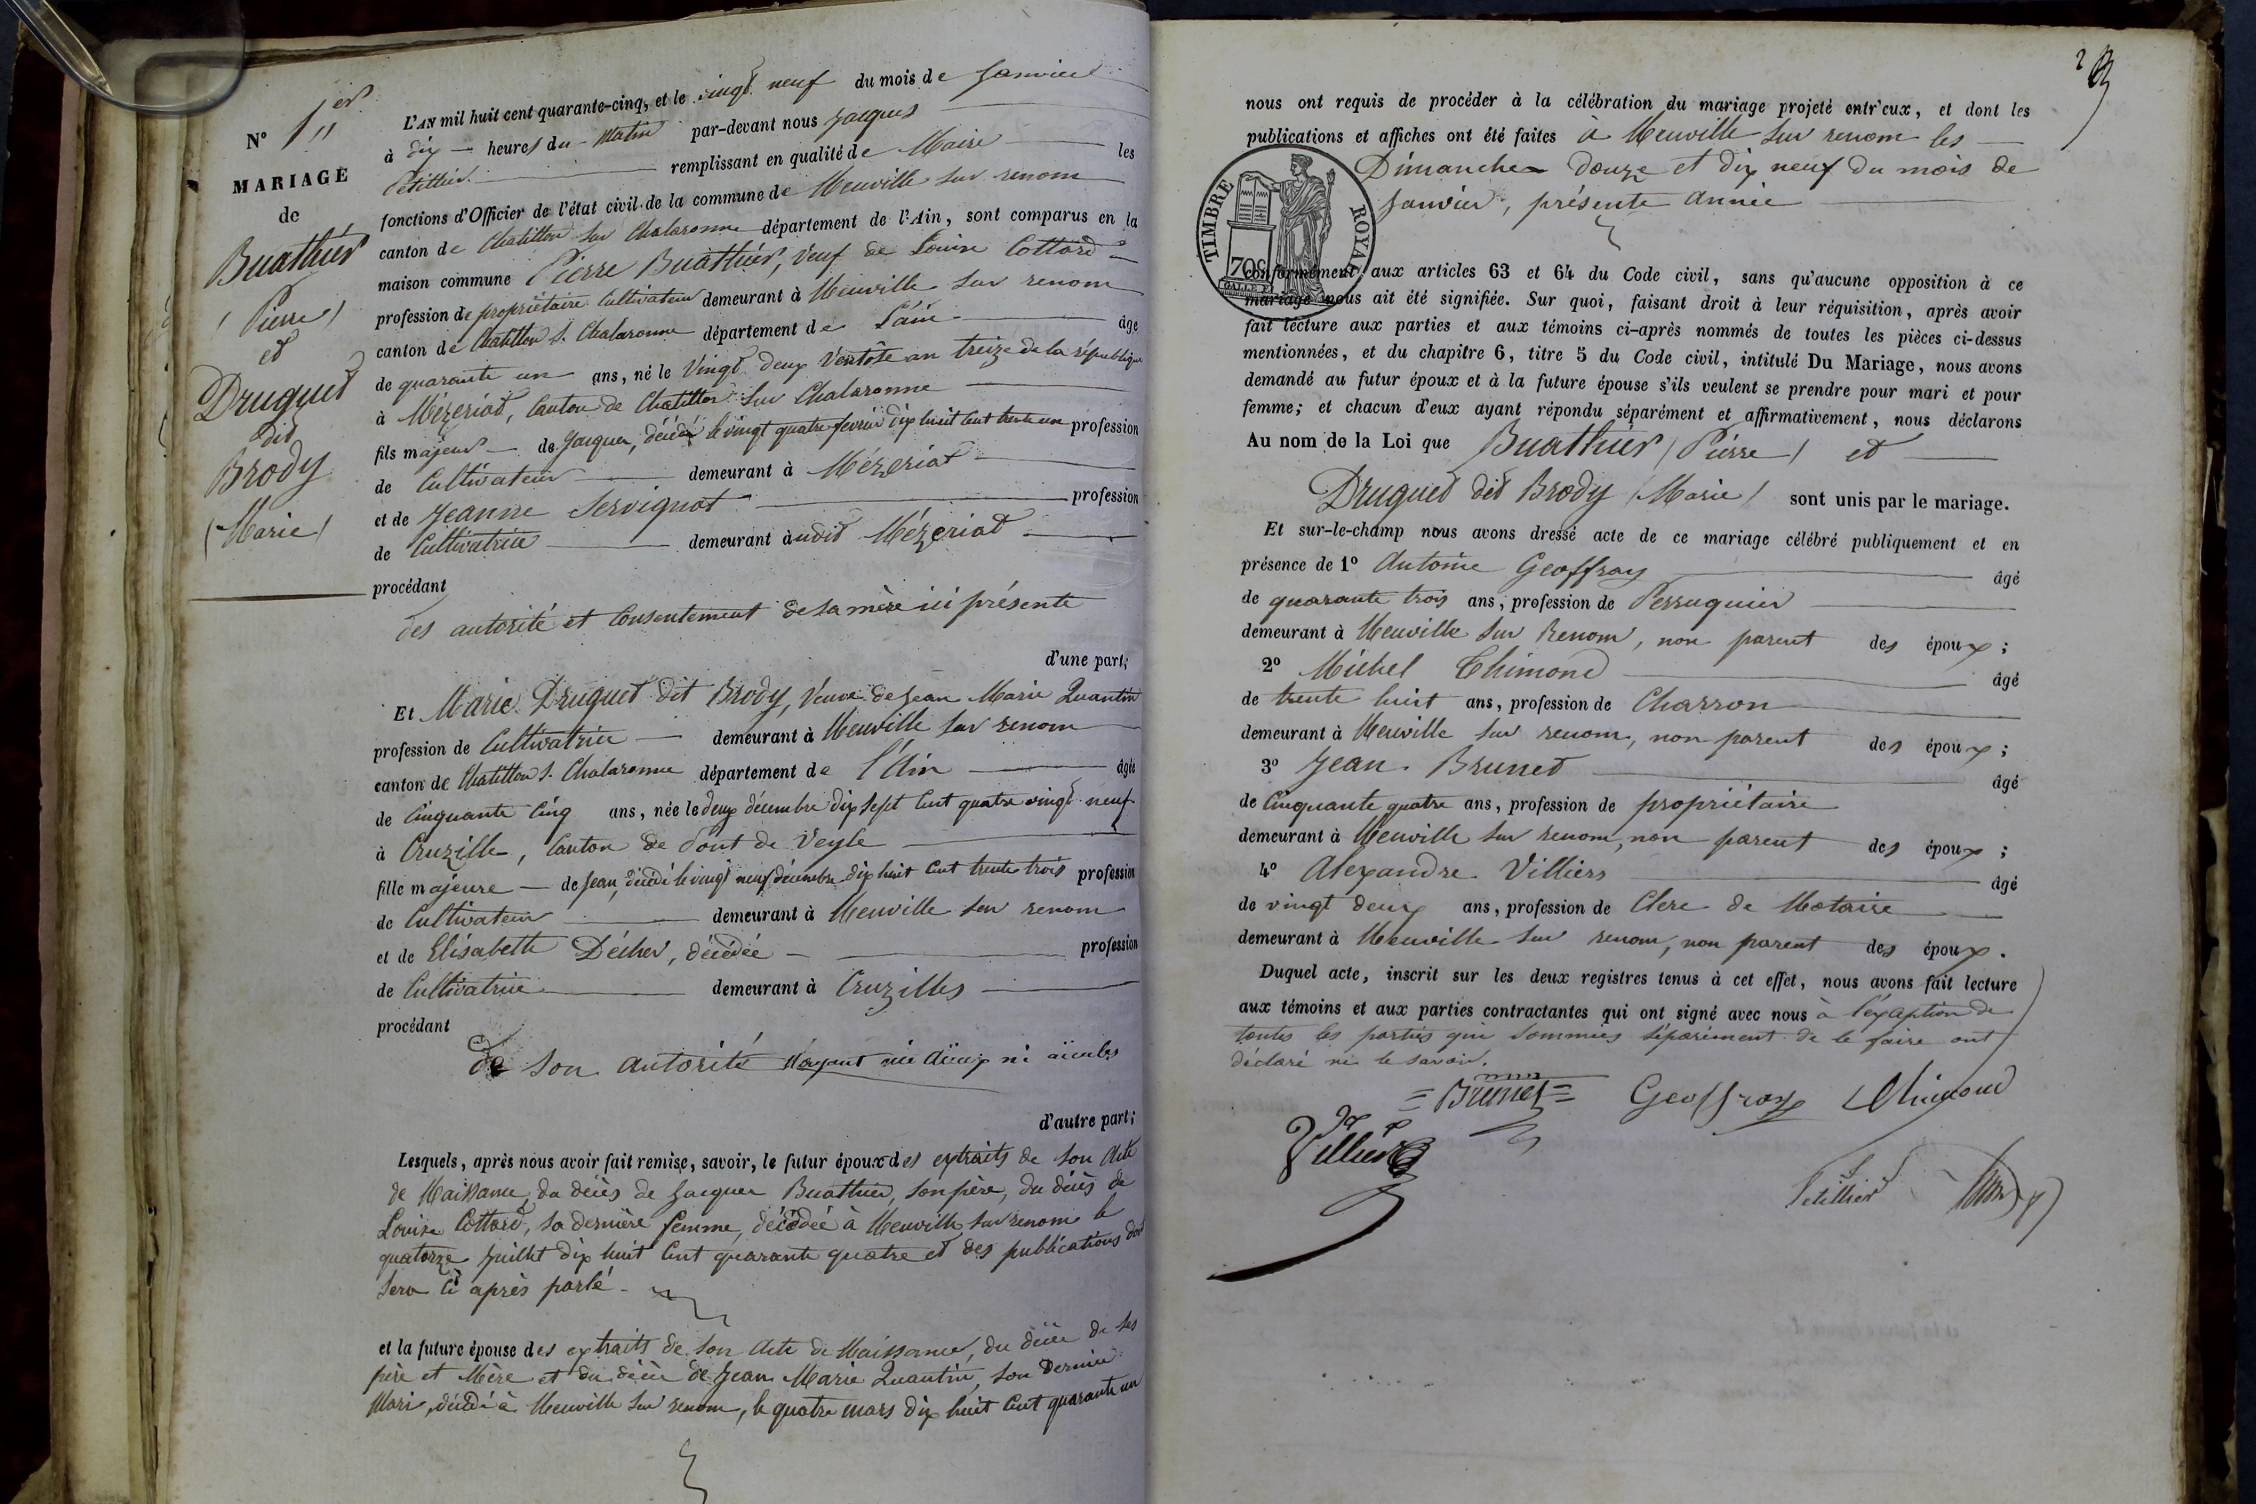 N° 1er
MARIAGE
de
Buathier
(Pierre)
et
Druguet
dit
Brody
(Marie)
L'AN mil huit cent quarante-cinq, et le vingt neuf du mois de Janvier
à dix heures du matin par-devant nous Jacques
Petillier remplissant en qualité de Maire les
fonctions d'Officier de l'état civil de la commune de Neuville sur renom
canton de Chatillon sur Chalaronne département de l'Ain, sont comparus en la
maison commune Pierre Buathier, veuf de Louise Cottard
profession de propriétaire Cultivateur demeurant à Neuville sur renom
canton de Chatillon s. Chalaronne département de l'ain âgé
de quarante un ans, né le Vingt deux Ventôse an treize de la république
à Mézeriat, Canton de Chatillon sur Chalaronne
fils majeur de Jacques, décédé le vingt quatre fevrier dix huit cent trente un profession
de Cultivateur demeurant à Mézeriat
et de Jeanne Servignat profession
de Cultivatrice demeurant audit Mézeriat
procédant
des autorité et Consentement de sa mère ici présente
d'une part;
Et Marie Druguet dit Brody, Veuve de Jean Marie Quantin
profession de Cultivatrice demeurant à Neuville sur renom
canton de Chatillon s. Chalaronne département de l'Ain âgée
de Cinquante Cinq ans, née le deux décembre dix sept Cent quatre vingt neuf
à Cruzille, Canton de Pont de Veyle
fille majeure de Jean, décédé le vingt neuf décembre dix huit Cent trente trois profession
de Cultivateur demeurant à Neuville sur renom
et de Elisabeth Décher, décédée profession
de Cultivatrice demeurant à Cruzilles
procédant
de son autorité n'ayant ni aïeux ni aïeules
d'autre part;
Lesquels, après nous avoir fait remise, savoir, le futur époux des extraits de son Acte
de Naissance, du décès de Jacques Buathier, son père, du décès de
Louise Cottard, sa dernière femme, décédée à Neuville sur renom le
quatorze Juillet dix huit Cent quarante quatre et des publications dont
sera Ci après parlé
et la future épouse des extraits de son Acte de Naissance, du décès de ses
père et Mère et du décès de Jean Marie Quantin, son Dernier
Mari, décédé à Neuville sur renom, le quatre mars dix huit Cent quarante un
2
nous ont requis de procéder à la célébration du mariage projeté entr'eux, et dont les
publications et affiches ont été faites à Neuville sur renom les
Dimanches Douze et dix neuf du mois de
Janvier, présente Année
TIMBRE ROYAL
70c
conformément aux articles 63 et 64 du Code civil, sans qu'aucune opposition à ce
mariage nous ait été signifiée. Sur quoi, faisant droit à leur réquisition, après avoir
fait lecture aux parties et aux témoins ci-après nommés de toutes les pièces ci-dessus
mentionnées, et du chapitre 6, titre 5 du Code civil, intitulé Du Mariage, nous avons
demandé au futur époux et à la future épouse s'ils veulent se prendre pour mari et pour
femme; et chacun d'eux ayant répondu séparément et affirmativement, nous déclarons
Au nom de la Loi que Buathier (Pierre) et
Druguet dit Brody (Marie) sont unis par le mariage.
Et sur-le-champ nous avons dressé acte de ce mariage célébré publiquement et en
présence de 1° Antoine Geoffray âgé
de quarante trois ans, profession de Perruquier
demeurant à Neuville sur Renom, non parent des époux;
2° Michel Thimond âgé
de trente huit ans, profession de Charron
demeurant à Neuville sur renom, non parent des époux;
3° Jean Brunet âgé
de Cinquante quatre ans, profession de propriétaire
demeurant à Neuville sur renom, non parent des époux;
4° Alexandre Villiers âgé
de vingt deux ans, profession de Clerc de Notaire
demeurant à Neuville sur renom, non parent des époux.
Duquel acte, inscrit sur les deux registres tenus à cet effet, nous avons fait lecture
aux témoins et aux parties contractantes qui ont signé avec nous à l'éxception de
toutes les parties qui sommées séparément de le faire ont
déclaré ne le savoir.
Brunet Geoffray Thimond
Villiers
Petillier